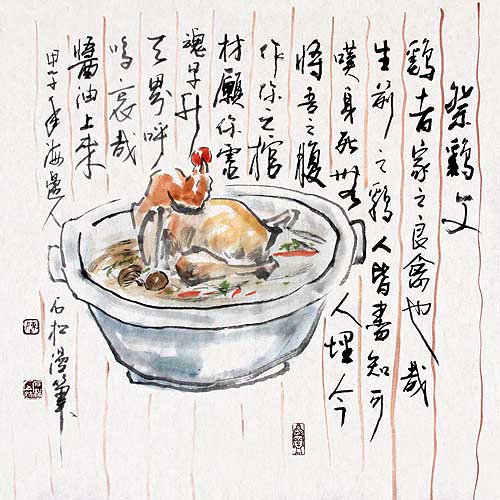 祭鷄文
鷄者家之良禽也哉
生前之鷄人皆盡知可
嘆身死無人埋今
將吾之腹
作你之棺
材願你靈
魂早升
天界呼
嗚哀哉
醬油上來
甲午年海邊人
石松漫筆